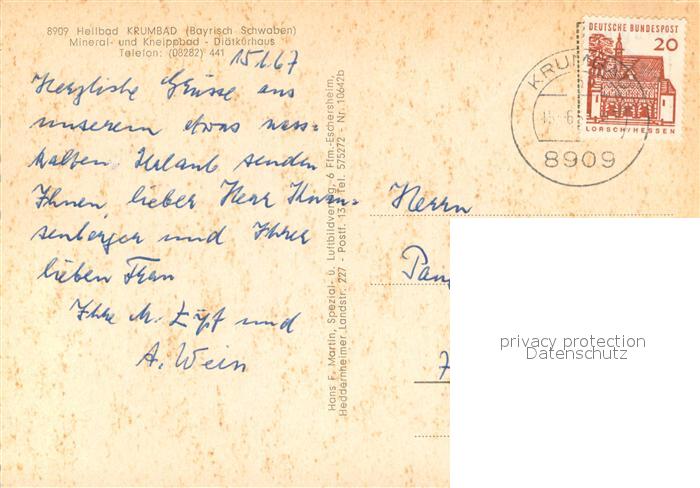 8909 Heilbad KRUMBAD (Bayrisch Schwaben)
Mineral- und Kneippbad - Diätkurhaus
Telefon: (08282) 441
15.6.67
Herzliche Grüsse aus
unserem etwas nass-
kalten Urlaub senden
Ihnen, lieber Herr
senberger und Ihrer
lieben Frau
Ihre M. Zipf und
A. Wein
Hans F. Martin, Spezial- u. Luftbildverlag, 6 Ffm.-Eschersheim,
Heddernheimer Landstr. 227 - Postf. 13 Tel. 575272 - Nr. 10642b
DEUTSCHE BUNDESPOST
20
LORSCH/HESSEN
8909
Herrn
privacy protection
Datenschutz